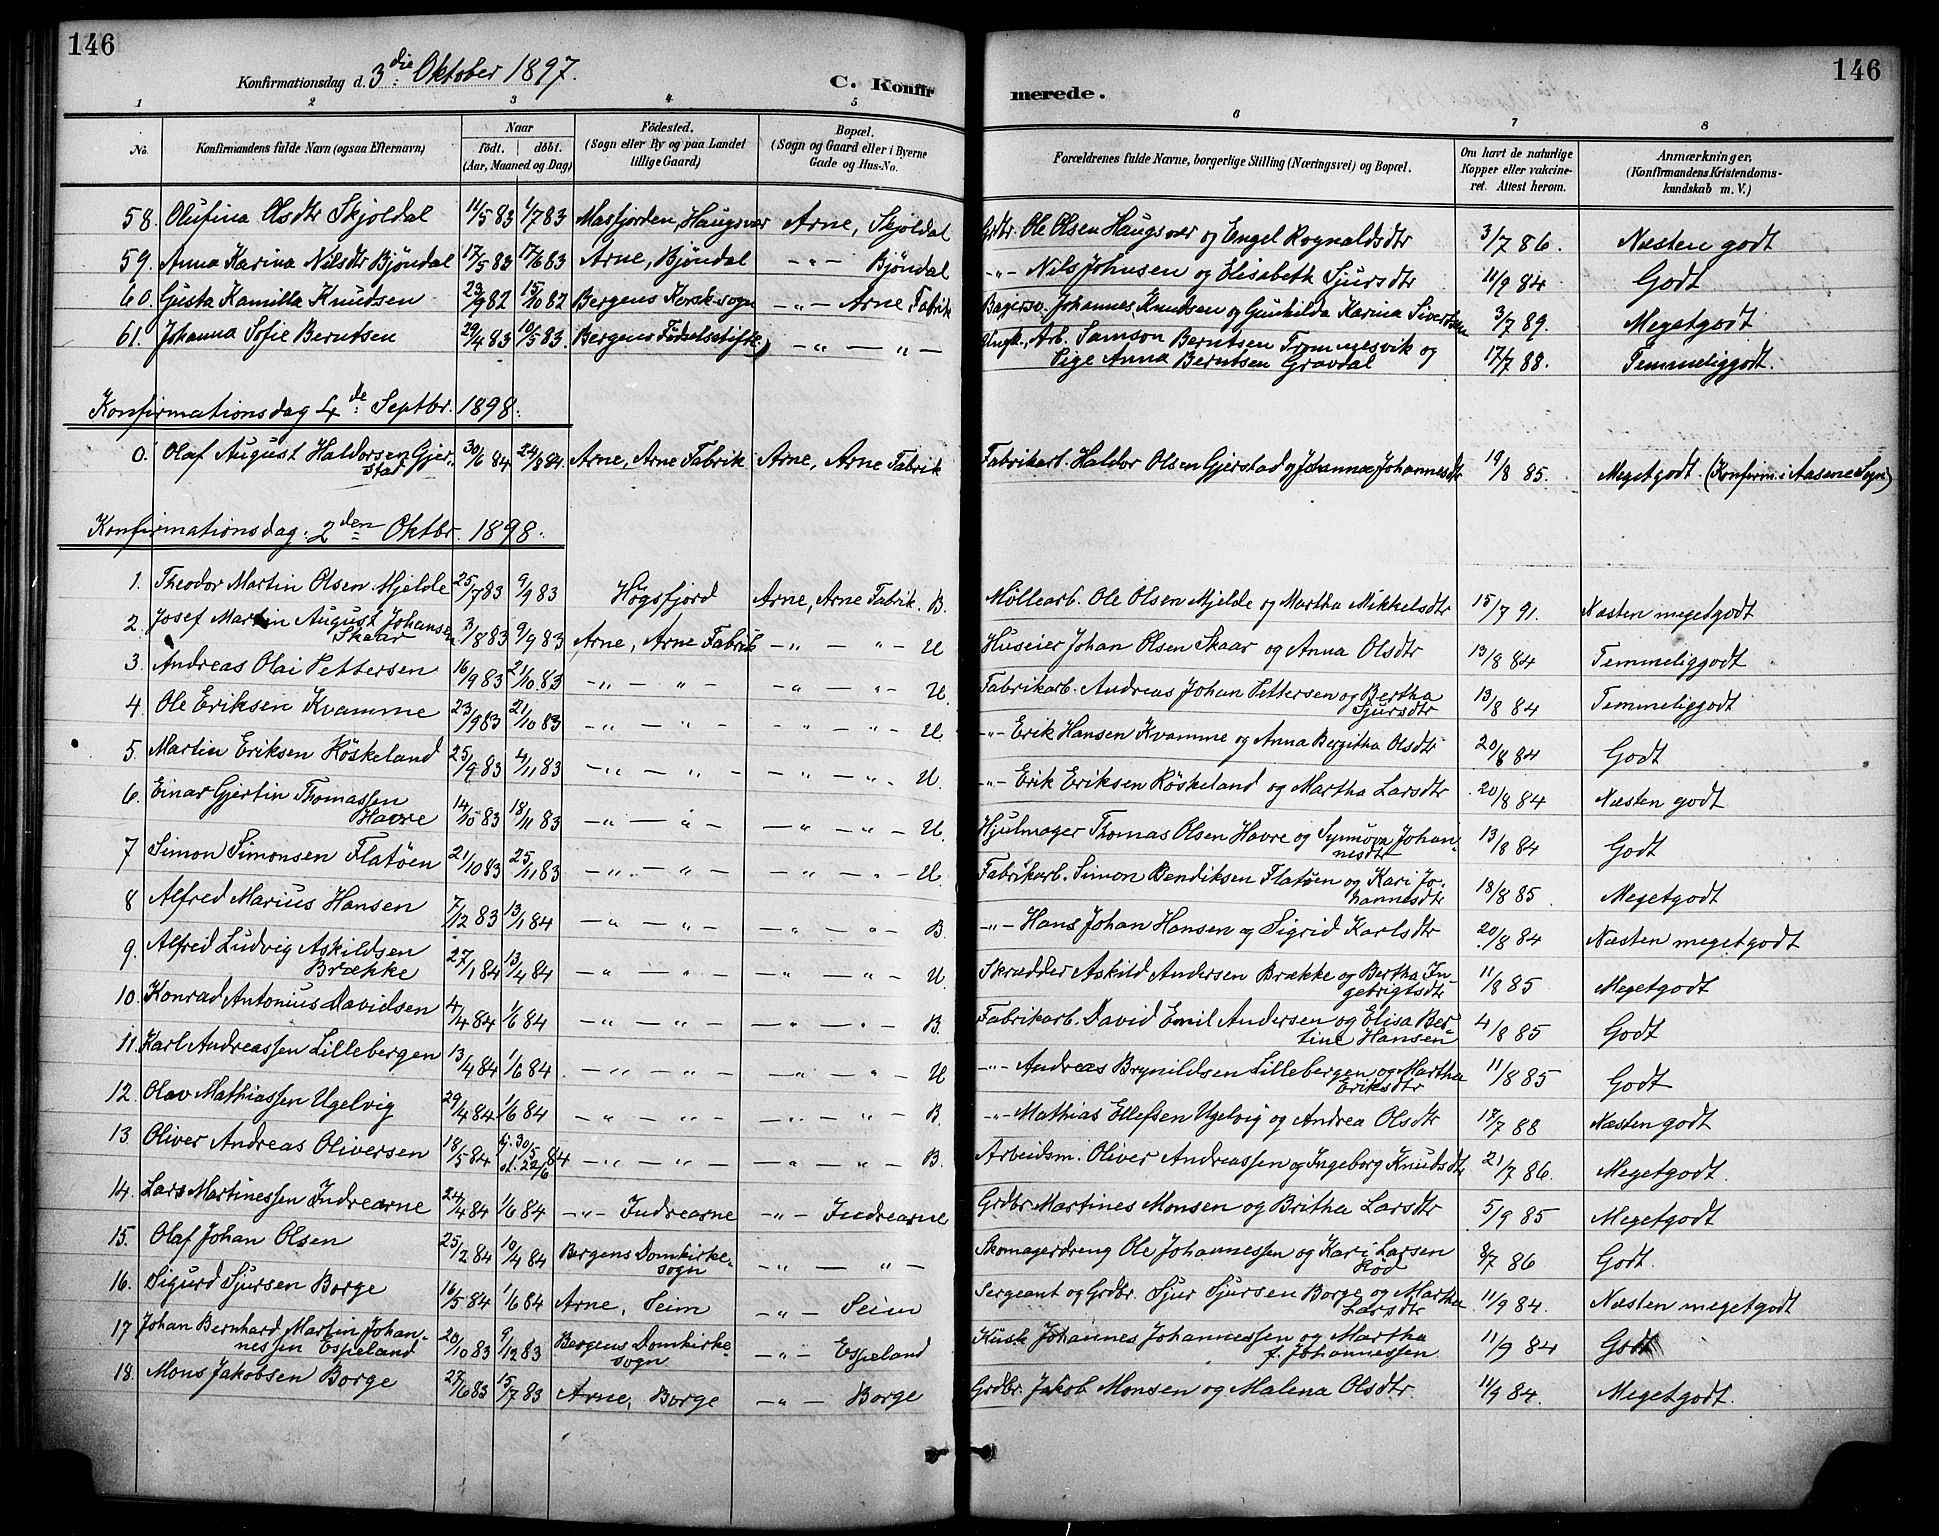 146
146
Konfirmationsdag d. 3die Oktober 1897.
C. Konfir
merede.
1 2 3 4 5 6 7 8
No.
Konfirmandens fulde Navn (ogsaa Efternavn)
Naar
født. døbt.
(Aar, Maaned og Dag)
Fødested.
(Sogn eller By og paa Landet
tillige Gaard)
Bopæl.
(Sogn og Gaard eller i Byerne
Gade og Hus-No.
Forældrenes fulde Navne, borgerlige Stilling (Næringsvei) og Bopæl.
Om havt de naturlige
Kopper eller vakcine-
ret. Attest herom.
Anmærkninger.
(Konfirmandens Kristendoms-
kundskab m. V.)
58. Olufina Olsdtr Skjoldal 11/5 83 1/7 83 Masfjorden, Haugsvær Arne, Skjoldal Grdbr. Ole Olsen Haugsvær og Engel Rognaldsdtr 3/7 86. Næsten godt
59. Anna Karina Nilsdtr Bjöndal 17/5 83 17/6 83 Arne, Bjöndal -"- Bjöndal -"- Nils Johnsen og Elisabeth Sjursdtr 11/9 84. Godt
60. Gusta Kamilla Knutsen 23/9 82 15/10 82 Bergens Korskesogn -"- Arne Fabrik Bagersv. Johannes Knutsen og Gunhilda Karina Sivertsen 3/7 89. Megetgodt
61. Johanna Sofie Berntsen 29/4 83 10/5 83. Bergens Födselsstifte) -"- — " - Ungk., Arb. Samson Berntsen Trommesvik og
Pige Anna Berntsen Gravdal 17/7 88. Temmeliggodt.
Konfirmationsdag 4de Septbr. 1898.
0. Olaf August Haldorsen Gjer-
stad 30/6 84 24/8 84. Arne, Arne Fabrik Arne, Arne Fabrik Fabrikarb. Haldor Olsen Gjerstad og Johanna Johannesdtr 19/8 85. Megetgodt. (Konfirm. i Aasene Sogn)
Konfirmationsdag: 2den Oktbr. 1898.
1. Theodor Martin Olsen Mjelde 25/7 83 9/9 83 Högsfjord Arne, Arne Fabrik. B. Möllearb. Ole Olsen Mjelde og Martha Mikkelsdtr 15/7 91. Næsten megetgodt
2. Josef Martin August Johansen
Skaar 3/8 83 9/9 83 Arne, Arne Fabrik -"- — "- U Huseier Johan Olsen Skaar og Anna Olsdtr 13/8 84 Temmeliggodt
3. Andreas Olai Pettersen 16/9 83 21/10 83 -"- — " - -"- — "- U. Fabrikarb. Andreas Johan Pettersen og Bertha
Sjursdtr 13/8 84 Temmeliggodt
4. Ole Eriksen Kvamme 23/9 83 21/10 83 -"- — " - " - "- U -"- Erik Hansen Kvamme og Anna Bergitha Olsdtr 20/8 84 Godt
5. Martin Eriksen Röskeland 25/9 83 4/11 83 -"- — " - -"- — "- U. -"- Erik Eriksen Röskeland og Martha Larsdtr 20/8 84 Næsten godt
6. Einar Gjertin Thomassen
Havre 14/10 83 18/11 83 -"- — " - -"- — "- U. Hjulmager Thomas Olsen Havre og Synnöva Johan-
nesdtr 13/8 84 Godt
7 Simon Simonsen Flatöen 21/10 83 25/11 83 -"- — " - -"- — "- U. Fabrikarb. Simon Bendiksen Flatöen og Kari Jo-
hannesdtr 18/8 85 Megetgodt
8 Alfred Marius Hansen 7/12 83 13/1 84 -"- — " - -"- — "- B. -"- Hans Johan Hansen og Sigrid Karlsdtr 20/8 84 Næsten megetgodt
9. Alfred Ludvig Askildsen
Brække 27/1 84 13/4 84 -"- — " - -"- — "- U Skrædder Askild Andersen Brække og Bertha In-
gebrigtsdtr 11/8 85 Megetgodt
10. Konrad Antonius Davidsen 4/4 84 1/6 84 -"- — " - -"- — "- B. Fabrikarb. David Emil Andersen og Elisa Ber-
tine Hansen 4/8 85 Godt
11. Karl Andreassen Lillebergen 13/4 84 1/6 84 -"- — " - -"- — "- U -"- Andreas Brynildsen Lillebergen og Martha
Eriksdtr 11/8 85 Godt
12. Olav Mathiassen Ugelvig 29/4 84 1/6 84 -"- — " - -"- — "- B. -"- Mathias Ellefsen Ugelvig og Andrea Olsdtr 17/7 88 Næsten godt
13. Oliver Andreas Oliversen 18/5 84 hj. 30/5 84
st. 22/6 -"- — " - -"- — "- B. Arbeidsm. Oliver Andreassen og Ingeborg Knudsdtr 21/7 86. Megetgodt
14. Lars Martinessen Indrearne 24/4 84 1/6 84 -"- Indrearne -"- Indrearne Grdbr. Martines Monsen og Britha Larsdtr 5/9 85 Megetgodt
15. Olaf Johan Olsen 25/2 84 10/4 84 Bergens Domkirke-
sogn -"- — " - Skomagerdreng Ole Johannessen og Kari Larsen
Röd 8/7 86 Godt.
16. Sigurd Sjursen Borge 16/5 84 1/6 84 Arne, Seim -"- Seim Sergeant og Grdbr. Sjur Sjursen Borge og Martha
Larsdtr 11/9 84. Næsten megetgodt
17 Johan Bernhard Martin Johan-
nessen Espeland 20/10 83 9/12 83 Bergens Domkirke-
sogn -"- Espeland Kusk Johannes Johannessen og Martha
f. Johannessen 11/9 84 Godt
18. Mons Jakobsen Borge 27/6 83 15/7 83 Arne, Borge -"- Borge Grdbr. Jakob Monsen og Malena Olsdtr. 11/9 84. Megetgodt.